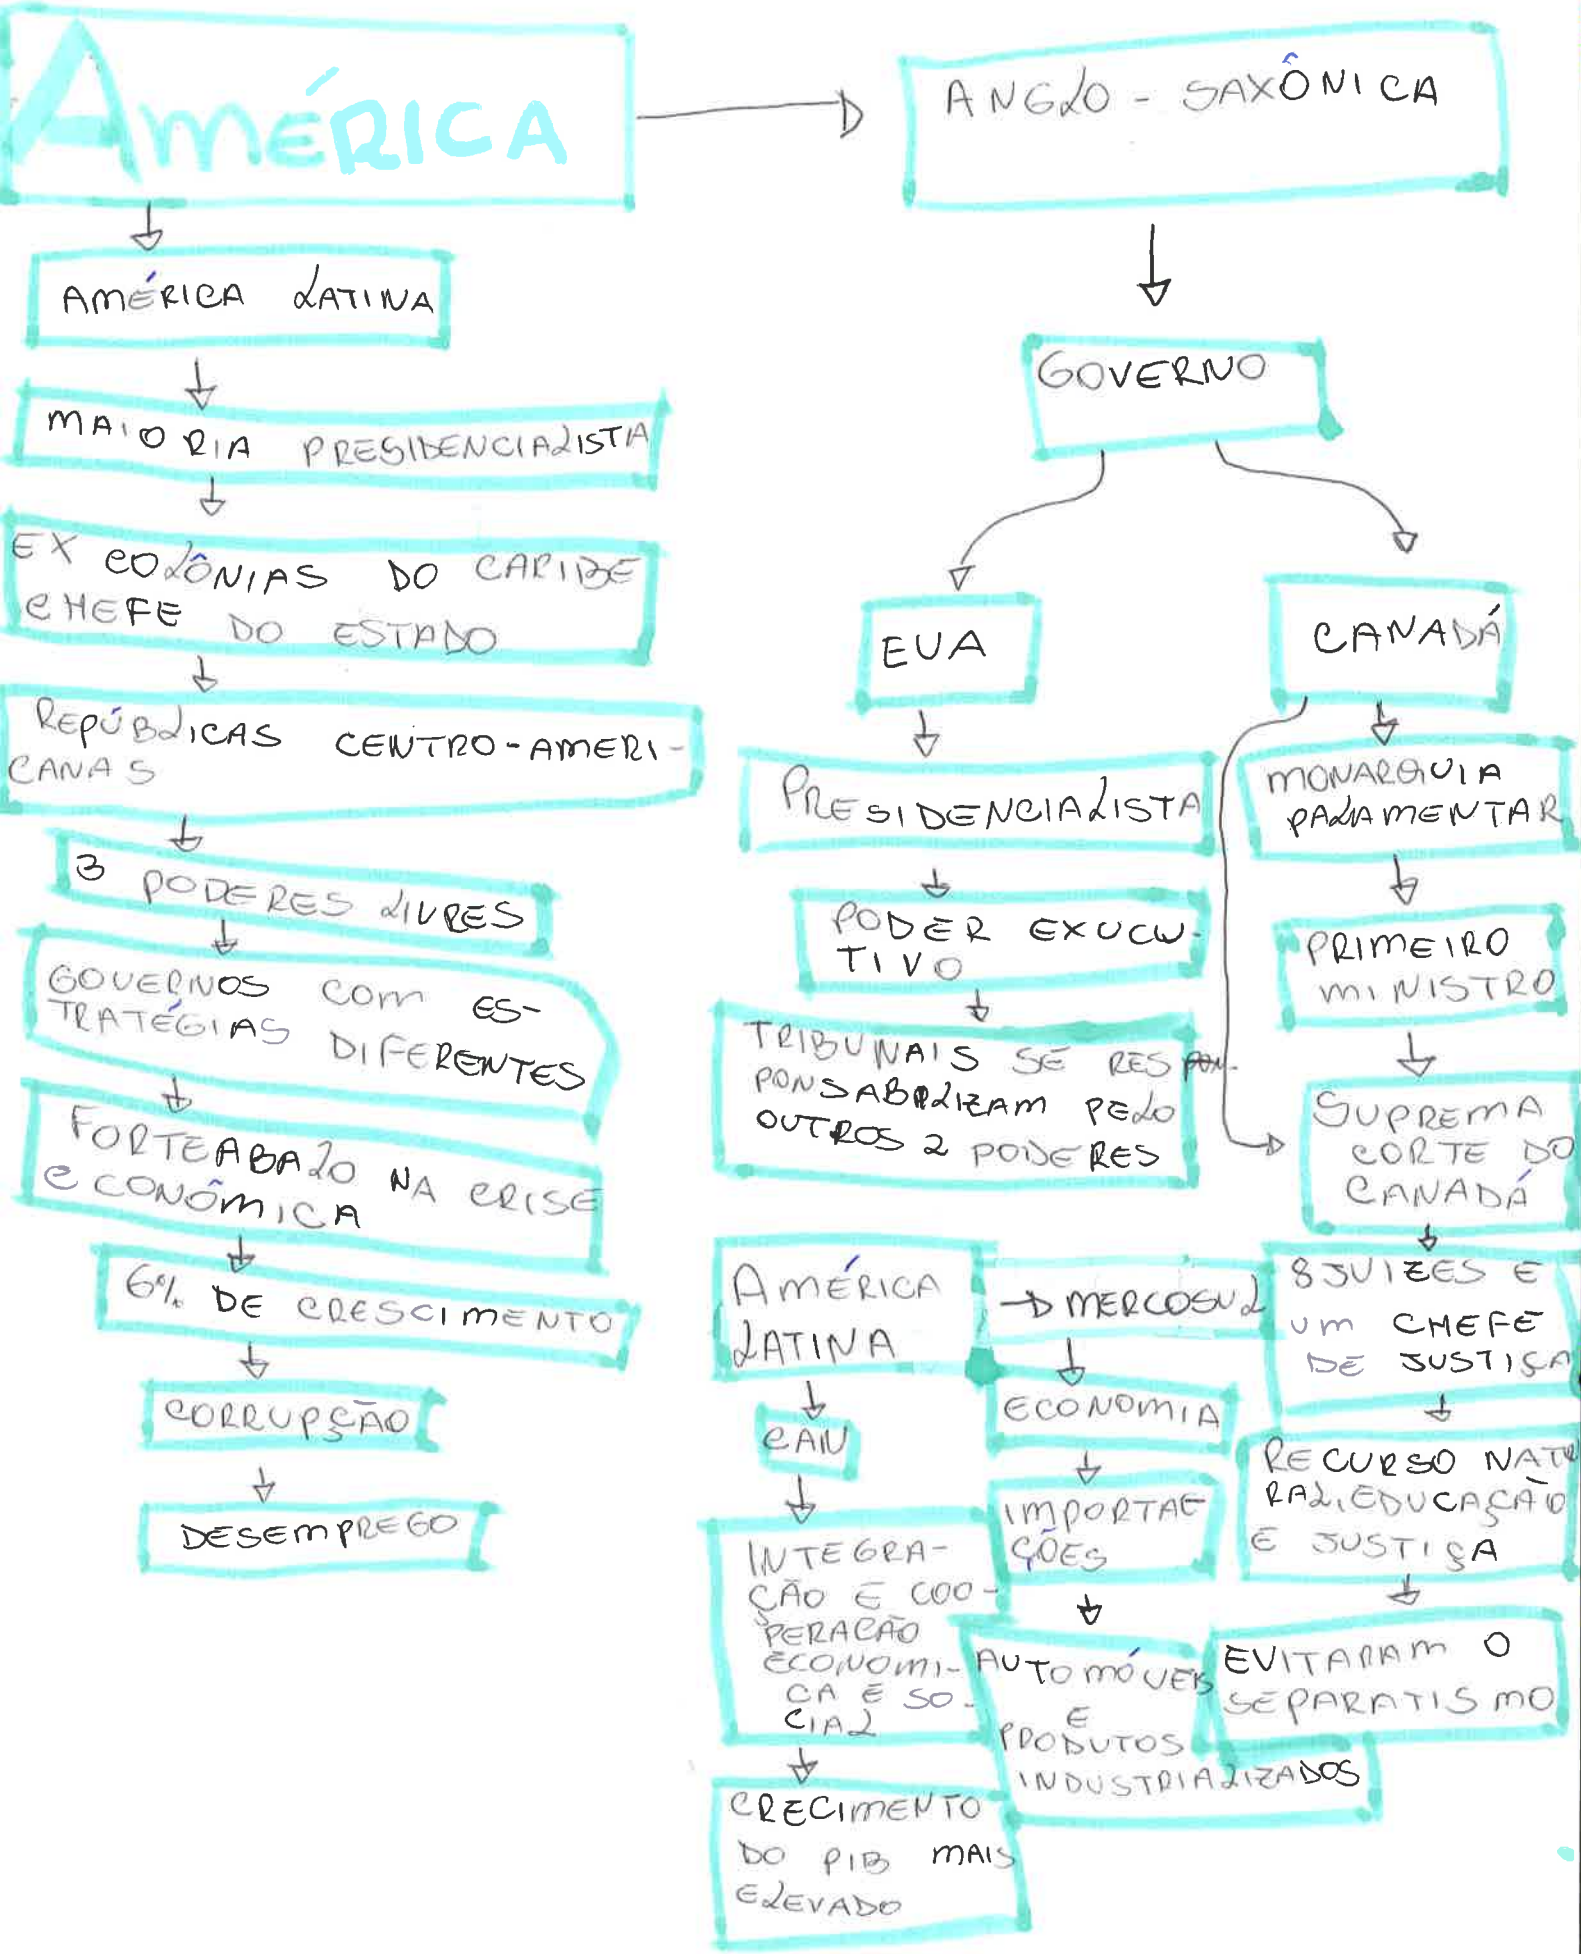 AMÉRICA
AMÉRICA LATINA
MAIORIA PRESIDENCIALISTA
EX COLÔNIAS DO CARIBE
CHEFE DO ESTADO
REPÚBLICAS CENTRO-AMERI-
CANAS
3 PODERES LIVRES
GOVERNOS COM ES-
TRATÉGIAS DIFERENTES
FORTE ABALO NA CRISE
ECONÔMICA
6% DE CRESCIMENTO
CORRUPÇÃO
DESEMPREGO
ANGLO-SAXÔNICA
GOVERNO
EUA
PRESIDENCIALISTA
PODER EXUCU-
TIVO
TRIBUNAIS SE RES
PONSABILIZAM PELO
OUTROS 2 PODERES
CANADÁ
MONARQUIA
PALAMENTAR
PRIMEIRO
MINISTRO
SUPREMA
CORTE DO
CANADÁ
8 JUIZES E
UM CHEFE
DE JUSTIÇA
RECURSO NATU
RAL, EDUCAÇÃO
E JUSTIÇA
EVITARAM O
SEPARATISMO
AMÉRICA
LATINA
CAN
INTEGRA-
ÇÃO E COO-
PERAÇÃO
ECONOMI-
CA E SO-
CIAL
CRECIMENTO
DO PIB MAIS
ELEVADO
MERCOSUL
ECONOMIA
IMPORTAE
ÇÕES
AUTOMÓVEIS
E
PRODUTOS
INDUSTRIALIZADOS